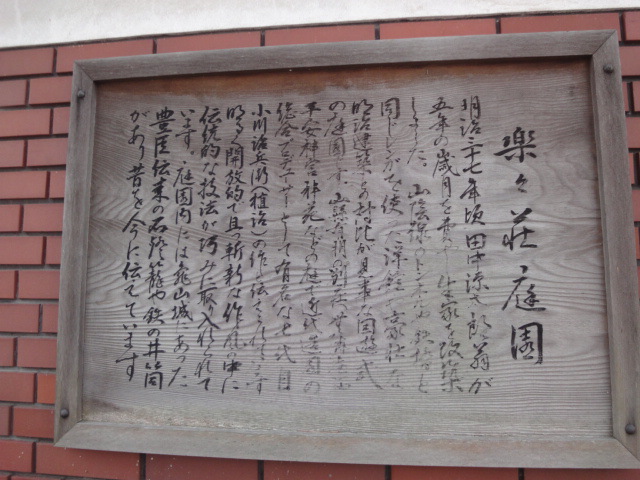 楽々荘庭園
明治三十七年頃田中源太郎翁が
五年の歳月を費やし生家を改築
しました 山陰線のトンネルや鉄橋と
同じレンガを使った洋館と豪壮な
明治建築との対比が見事な回遊式
の庭園です
平安神宮神苑などの庭 近代造園の
総合デザイナーとして有名な七代目
小川治兵衛(植治)の作と伝えられています
明るく開放的で且つ斬新な作庭の中に
伝統的な技法が巧みに取り入れられて
います 庭園内には亀山城にあった
豊臣伝来の石燈籠や鉄の井筒
があり昔を今に伝えています